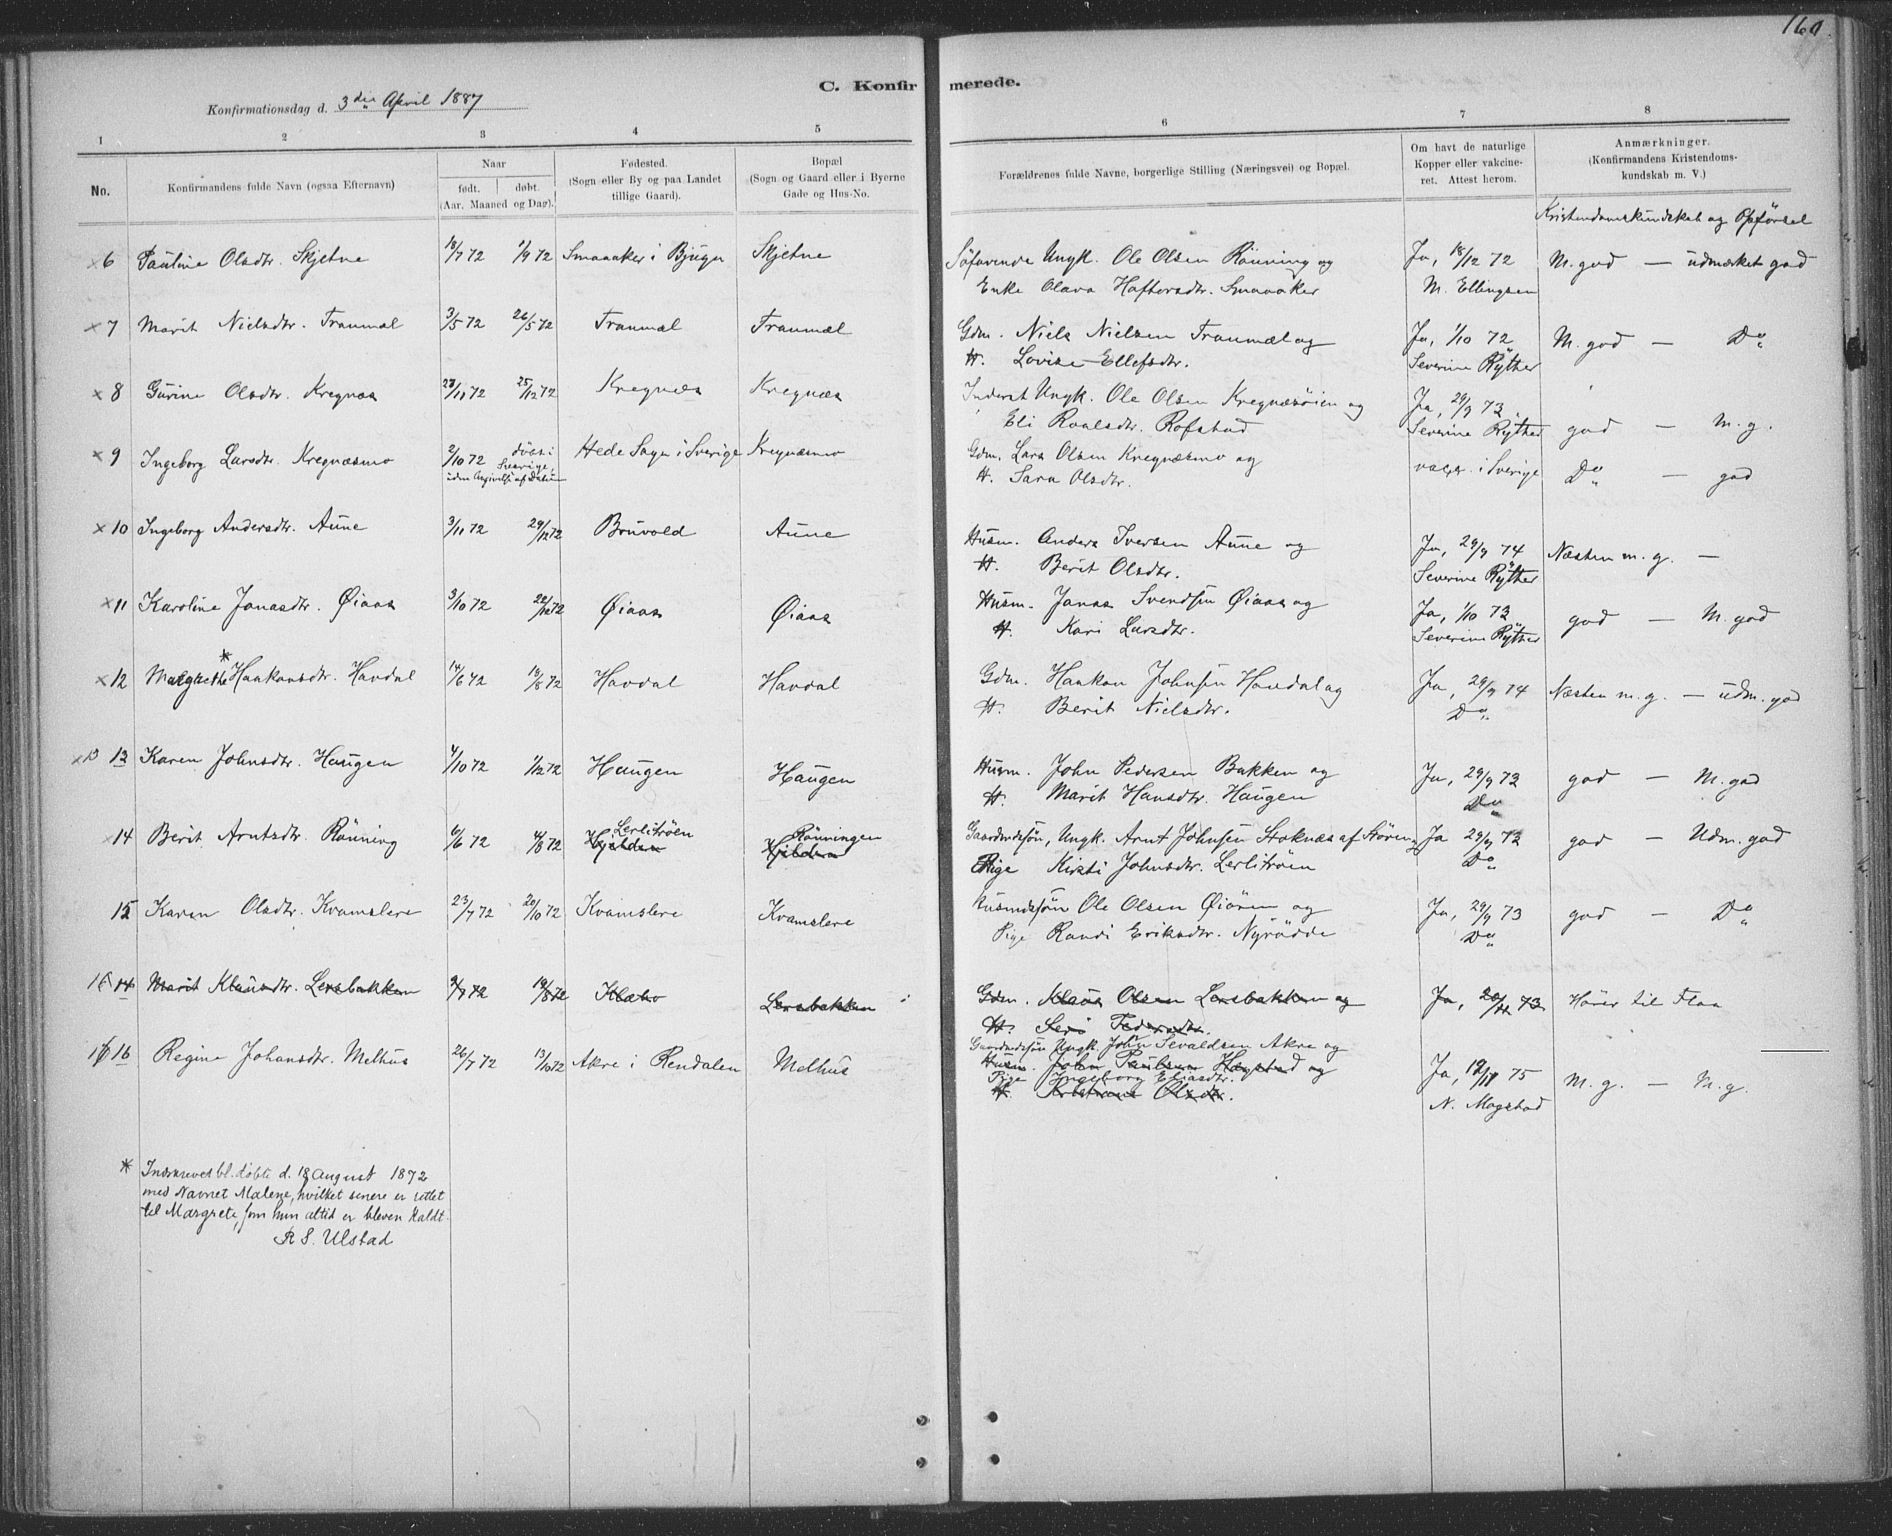 160.
C. Konfirmerede.
Konfirmationsdag d. 3die April 1887
1 2 3 4 5 6 7 8
No. Konfirmandens fulde Navn (ogsaa Efternavn) Naar født. døbt. (Aar, Maaned og Dag). Fødested. (Sogn eller By og paa Landet tillige Gaard). Bopæl (Sogn og Gaard eller i Byerne Gade og Hus-No. Forældrenes fulde Navne, borgerlige Stilling (Næringsvei) og Bopæl. Om havt de naturlige Kopper eller vakcineret. Attest herom. Anmærkninger. (Konfirmandens Kristendomskundskab m. V.)
Kristendomskundskab og Opførsel
x 6 Pauline Olsdtr. Skjetne 18/7 72 1/9 72 Smaaaker i Bjugn Skjetne Søfarende Ungk. Ole Olsen Rönning og Ja, 18/12 72 M. god — udmærket god
Enke Olava Haftorsdtr. Smaaaker M. Ellingsen
x 7 Marit Nielsdtr. Tranmæl 3/5 72 26/5 72 Tranmæl Tranmæl Gdm. Niels Nielsen Tranmæl og Ja, 1/10 72 M. god — Do
H. Lovise Ellefsdtr. Severine Rÿther
x 8 Gurine Olsdtr. Kregnæs 23/11 72 25/12 72 Kregnæs Kregnæs Inderst Ungk. Ole Olsen Kregnæsöien og Ja, 29/9 73 god — M. g.
Eli Roalsdtr. Rofstad Severine Rÿther
x 9 Ingeborg Larsdtr. Kregnæsmo 2/10 72 döbt i Sverige, uden Angivelse af Datum Hede Sogn i Sverige Kregnæsmo Gdm. Lars Olsen Kregnæsmo og vacc. i Sverige Do — god
H. Sara Olsdtr.
x 10 Ingeborg Andersdtr. Aune 3/11 72 29/12 72 Bruvold Aune Husm. Anders Iversen Aune og Ja, 29/9 74 Næsten m. g. —
H. Berit Olsdtr. Severine Rÿther
x 11 Karoline Jonasdtr. Øiaas 3/10 72 22/12 72 Øiaas Øiaas Husm. Jonas Svendsen Øiaas og Ja, 1/10 73 god — M. god
H. Kari Larsdtr. Severine Rÿther
x 12 Margrethe * Haakonsdtr. Havdal 14/6 72 18/8 72 Havdal Havdal Gdm. Haakon Johnsen Havdal og Ja, 29/9 74 Næsten m. g. — udm. god
H. Berit Nielsdtr. Do
x 13 13 Karen Johnsdtr. Haugen 4/10 72 1/12 72 Haugen Haugen Husm. John Pedersen Bakken og Ja, 29/9 73 god — M. god
H. Marit Hansdtr. Haugen Do
x 14 Berit Arntsdtr. Rönning 6/6 72 4/8 72 Lerlitröen Rönningen Gaardmdssön, Ungk. Arnt Johnsen Stoknæs af Stören Ja 29/9 73 god — Udm. god
Pige Kirsti Johnsdtr. Lerlitröen Do
15 Karen Olsdtr. Kvamslere 23/7 72 20/10 72 Kvamslere Kvamslere Husmdssön Ole Olsen Øiören og Ja, 29/9 73 god — Do
Pige Randi Eriksdtr. Nyrödde Do
14 Marit Klausdtr. Lersbakken 9/7 72 18/8 72 Klæbo Lersbakken Gdm. Klaus Olsen Lersbakken og Ja, 73 Hörer til Flaa
H. Pedersdtr.
Gaardmdssön Ungk. John Sevaldsen Akre og
16 Regine Johansdtr. Melhus 26/7 72 13/10 72 Akre i Rendalen Melhus Husm. John Paulsen Hagstad og Ja, 12/11 75 M. g. — M. g.
Pige Ingeborg Eliasdtr.
H. Olsdtr. N. Mogstad
* Indskrevet bl. döbte d. 18 August 1872
med Navnet Malene, hvilket senere er rettet
til Margrete, som hun altid er bleven kaldt.
R S. Ulstad